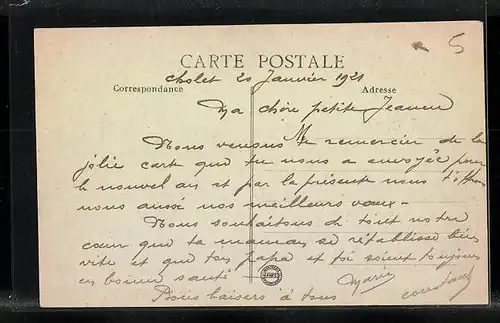 5
CARTE POSTALE
cholet 20 Janvier 1921
Correspondance
Adresse
Ma chère petite Jeanne
Nous venons te remercier de la
jolie cart que tu nous a envoyée pour
le nouvel an et par la présente nous t'offrons
nous aussi nos meilleurs vœux -
Nous souhaitons de tout notre
cœur que ta maman se rétablisse bien
vite et que ton papa et toi soient toujours
en bonne santé
Marie
Bons baisers à tous
constant